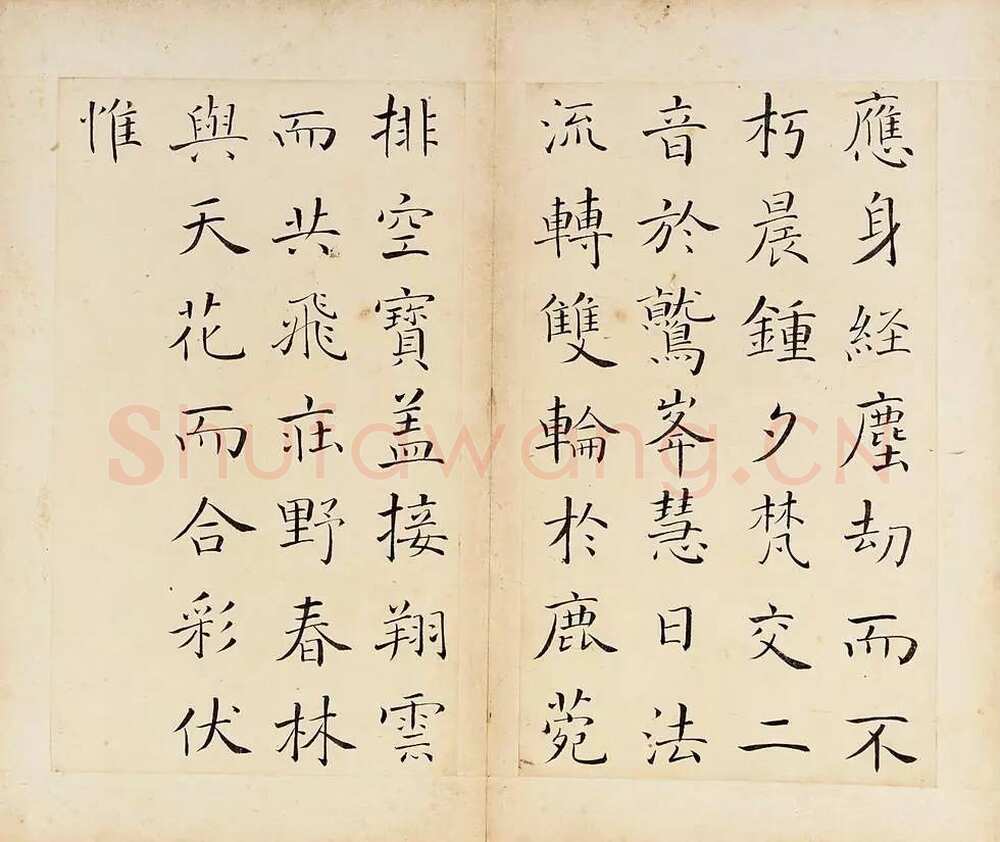 應身経塵劫而不
朽晨鍾夕梵交二
音於鷲峯慧日法
流轉雙輪於鹿菀
排空寶盖接翔雲
而共飛莊野春林
與天花而合彩伏
惟
Shufawang.CN